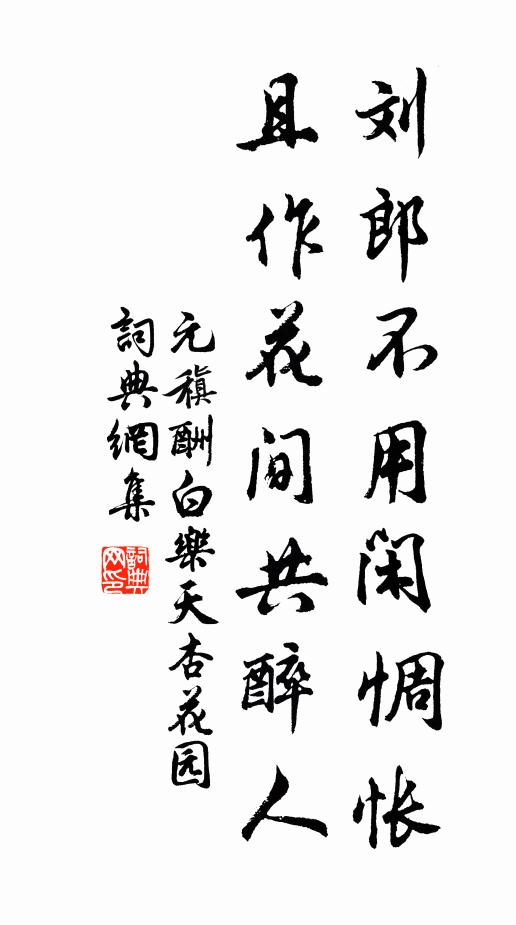 刘郎不用闲惆怅
且作花间共醉人
元稹酬白樂天杏花园
詞典網集
詞典
网印